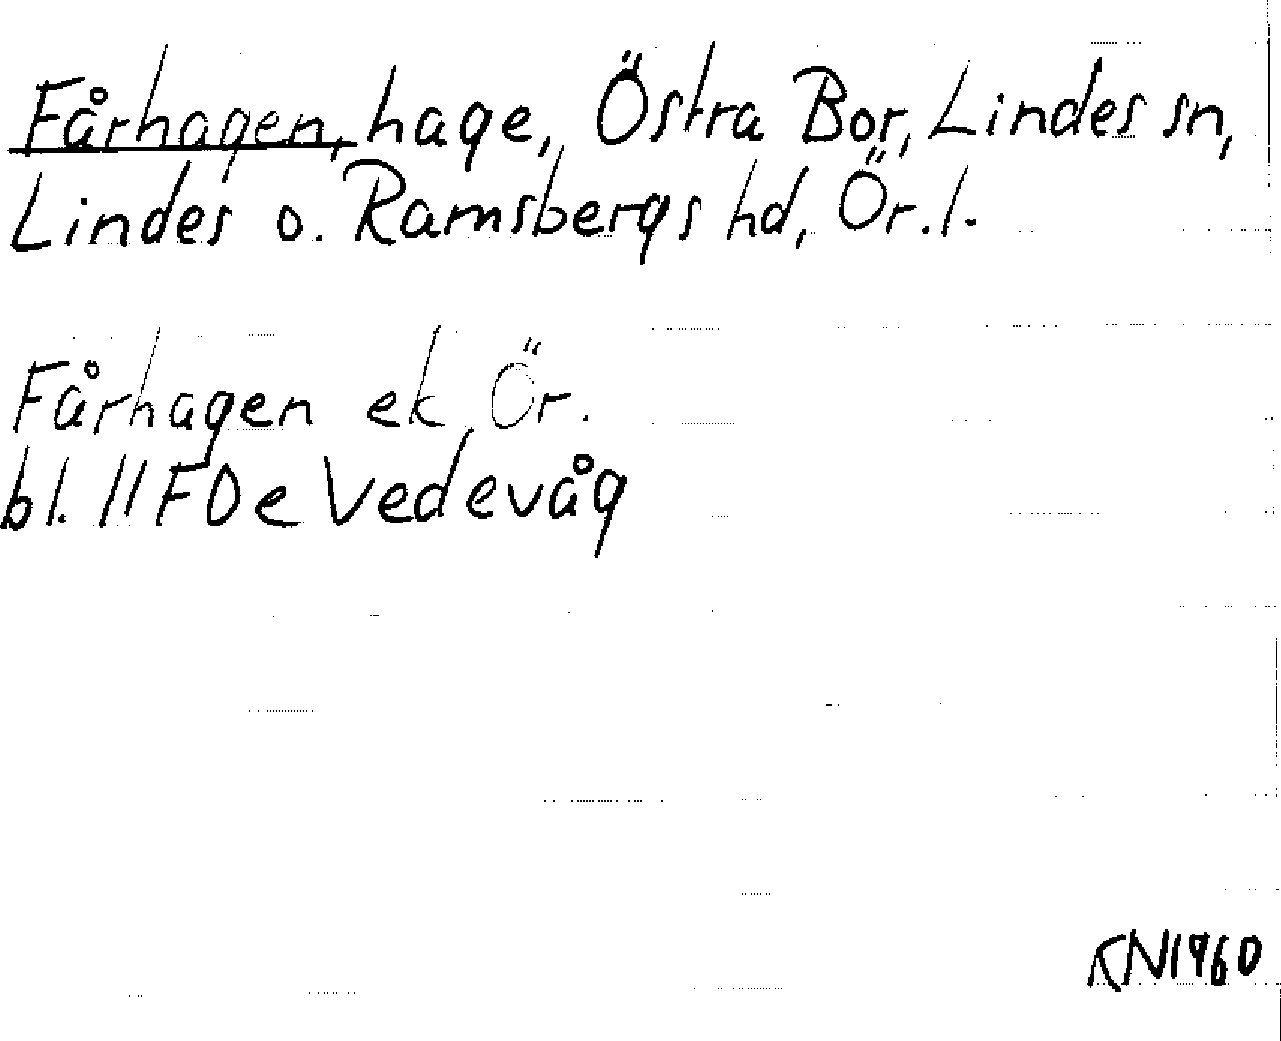 Fårhagen, hage, Östra Bor, Lindes sn,
Lindes o. Ramsbergs hd, Ör. l.
Fårhagen ek Ör.
bl. 11F0e Vedevåg
1960